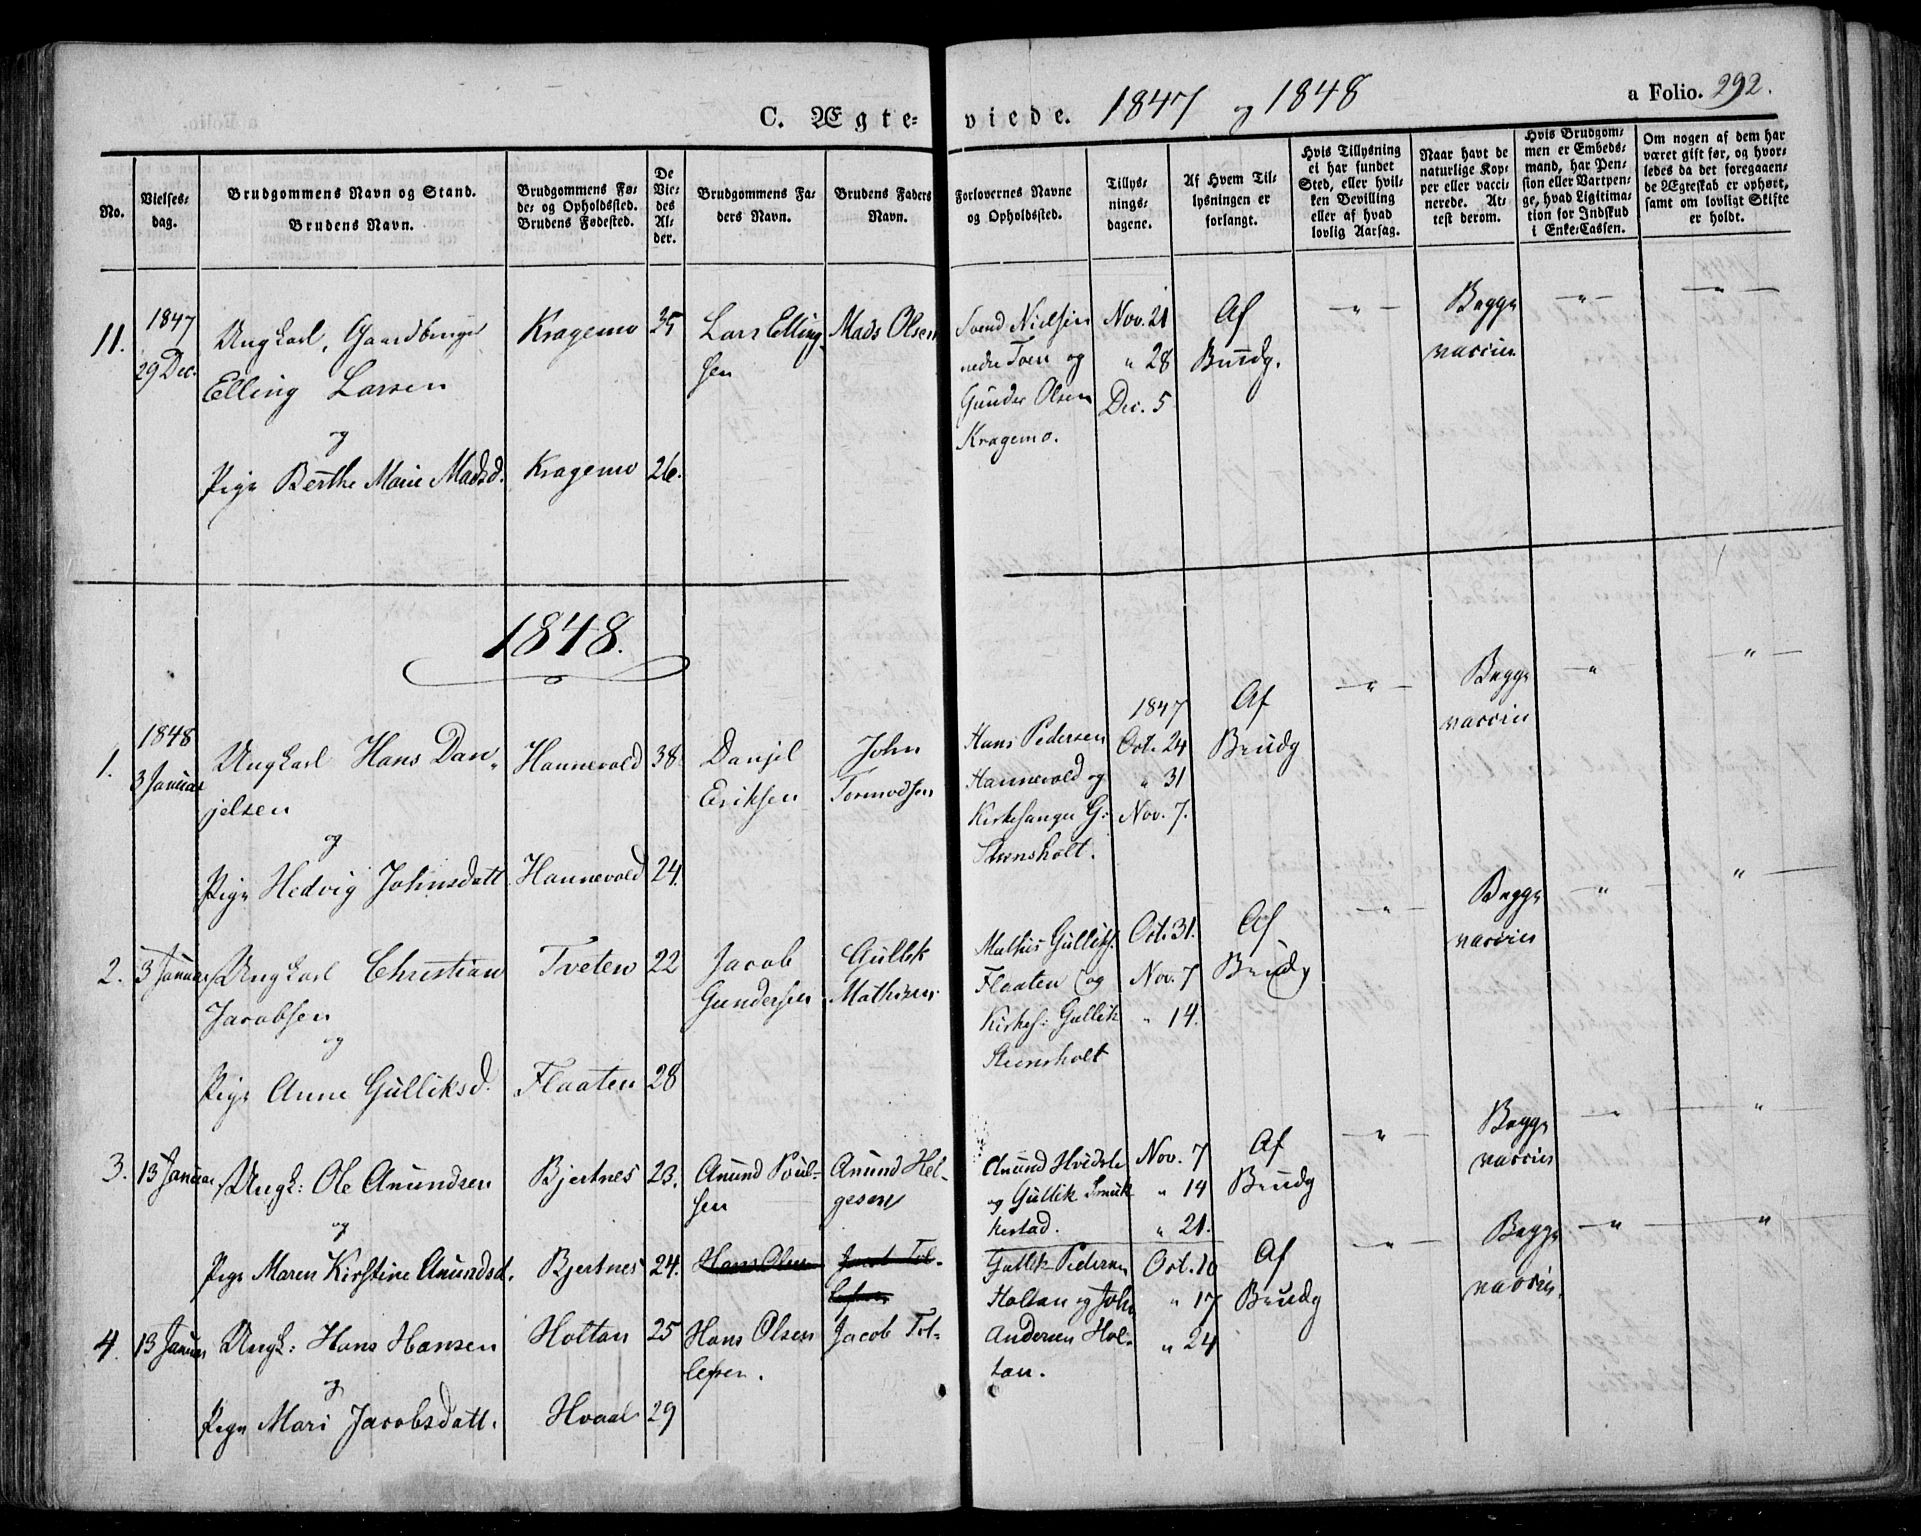 C. Ægte-viede. 1847 og 1848
a Folio. 292.
No.
Vielses-
dag.
Brudgommens Navn og Stand.
Brudens Navn.
Brudgommens Fø-
de- og Opholdssted.
Brudens Fødested.
De
Vie-
des
Al-
der.
Brudgommens Fa-
ders Navn.
Brudens Faders
Navn.
Forlovernes Navne
og Opholdssted.
Tillys-
nings-
dagene.
Af Hvem Til-
lysningen er
forlangt.
Hvis Tillysning
ei har fundet
Sted, eller hvil-
ken Bevilling
eller af hvad
lovlig Aarsag.
Naar havt de
naturlige Kop-
per eller vacci-
nerede. At-
test derom.
Hvis Brudgom-
men er Embeds-
mand, har Pen-
sion eller Vartpen-
ge, hvad Ligitima-
tion for Indskud
i Enke-Cassen.
Om nogen af dem har
været gift før, og hvor-
ledes da det foregaaen-
de Ægteskab er ophørt,
samt om lovligt Skifte
er holdt.
11.
1847
29 Dec.
Ungkarl, Gaardbruger
Elling Larsen
og
Pige Berthe Marie Madsd.
Kragemo
Kragemo
35
26.
Lars Elling-
sen
Mads Olsen
Svend Nielsen
nedre Toen og
Gunder Olsen
Kragemo.
Nov. 21
" 28
Dec. 5
Af
Brudg.
"
Begge
vaccin
"
"
1848.
1.
1848
3 Januar
Ungkarl Hans Dan-
jelsen
og
Pige Hedvig Johnsdatt
Hannevold
Hannevold
38
24.
Danjel
Eriksen
John
Tormodsen
Hans Pedersen
Hannevold og
Kirkesanger G:
Steensholt.
1847
Oct. 24
" 31
Nov. 7.
Af
Brudg
"
Begge
vaccin
"
"
2.
3 Januar
Ungkarl Christian
Jacobsen
og
Pige Anne Gulliksd.
Tveten
Flaaten
22
28
Jacob
Gundersen
Gullik
Mathisen
Mathis Gulliks.
Flaaten og
Kirkes: Gullik
Steensholt
Oct. 31.
Nov. 7
" 14.
Af
Brudg
"
Begge
vaccin
"
"
3.
13 Januar
Ungk: Ole Anundsen
og
Pige Maren Kirstine Anundsd.
Bjertnes
Bjertnes
23.
24.
Anund Poul-
sen
Hans Olsen
Anund Hel-
gesen
Jacob Tol-
lefsen
Anund Hvidste
og Gullik Smuk-
kestad.
Nov. 7
" 14
" 21.
Af
Brudg
"
Begge
vaccin
"
"
4.
13 Januar
Ungk: Hans Hansen
og
Pige Mari Jacobsdatt.
Holtan
Hvaal
25
29
Hans Olsen
Jacob Tol-
lefsen.
Gullik Pedersen
Holtan og John
Andersen Hol-
tan.
Oct. 10
" 17
" 24
Af
Brudg
"
Begge
vaccin.
"
"